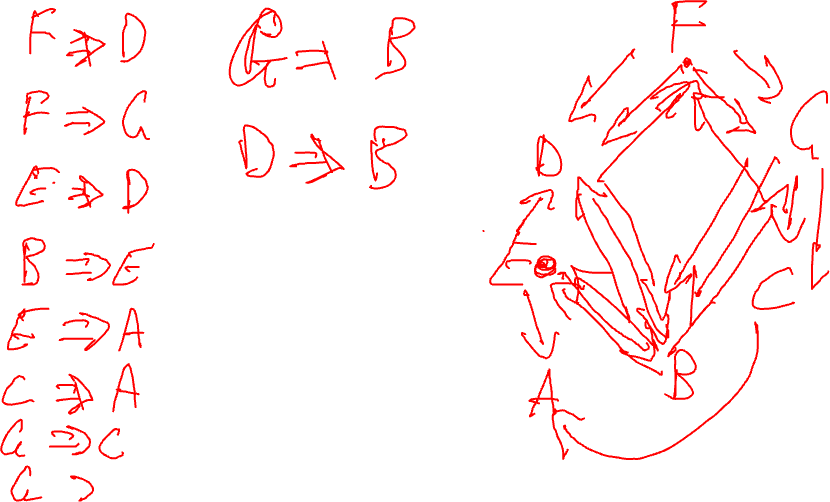 F ⇒ D
F ⇒ G
E ⇒ D
B ⇒ E
E ⇒ A
C ⇒ A
G ⇒ C
G
G ⇒ B
D ⇒ B
F
D
G
E
C
B
A